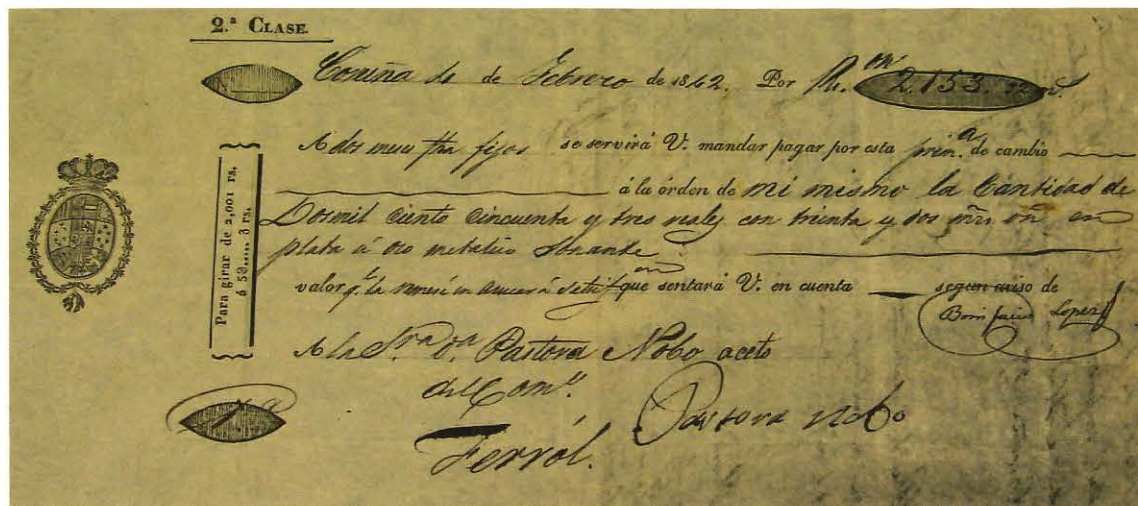 2.ª CLASE.
Coruña 1o de Febrero de 1842. Por Rs. on 2.153. 32 mrs.
A dos meses fha fijos se servirá V. mandar pagar por esta prim.a de cambio
á la órden de mi mismo la Cantidad de
Dosmil Ciento Cincuenta y tres reales con trienta y dos mrs vn en
plata ú oro metalico Sonante
valor q.e la remesé en Azucar á Satisf.on que sentará V. en cuenta segun aviso de
Bonifacio Lopez
Para girar de 2,001 rs.
á 50..... 3 rs.
A la S.ra D.a Pastora Nobo aceto
del Com.o
Pastora nobo
1.a
Ferról.